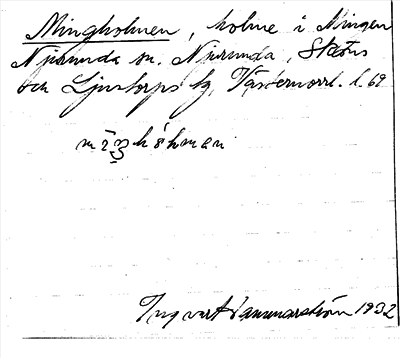 Mingholmen, holme i Mingen
Njurunda sn. Njurunda, Sköns
och Ljustorps tg, Västernorrl. l. 69
Ingvart Hammarström 1932